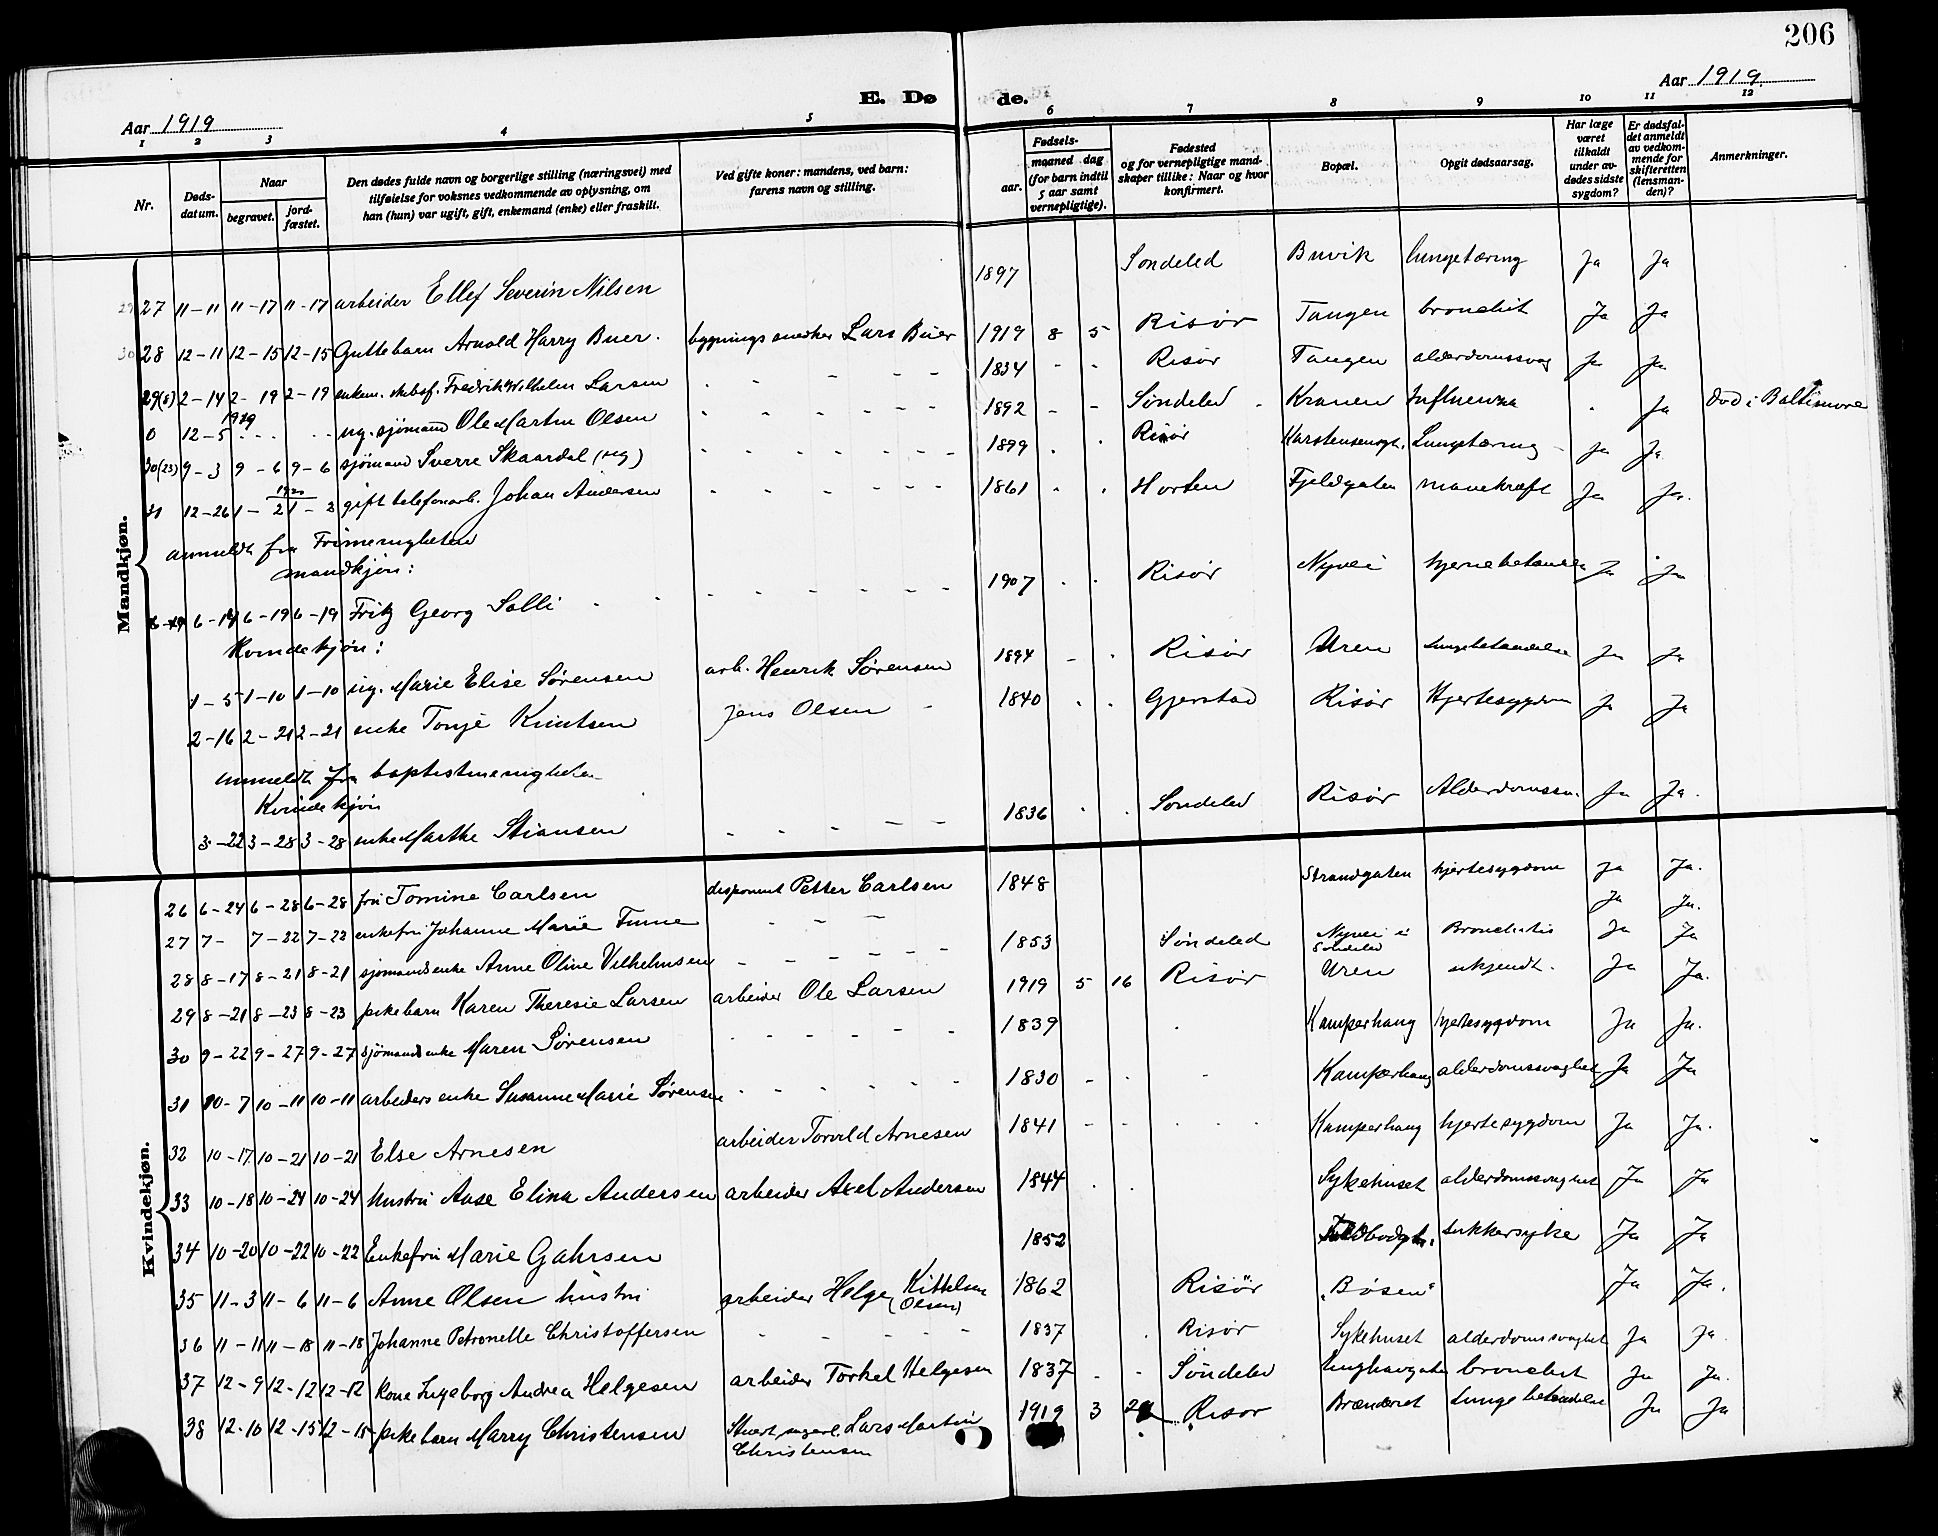 206
Aar 1919
E. Dø de.
Aar 1919
1 2 3 4 5 6 7 8 9 10 11 12
Nr.
Døds-
datum.
Naar
begravet.
jord-
fæstet.
Den dødes fulde navn og borgerlige stilling (næringsvei) med
tilføielse for voksnes vedkommende av oplysning, om
han (hun) var ugift, gift, enkemand (enke) eller fraskilt.
Ved gifte koner: mandens, ved barn:
farens navn og stilling.
Fødsels-
aar.
maaned dag
(for barn indtil
5 aar samt
vernepligtige).
Fødested
og for vernepligtige mand-
skaper tillike: Naar og hvor
konfirmert.
Bopæl.
Opgit dødsaarsag.
Har læge
været
tilkaldt
under av-
dødes sidste
sygdom?
Er dødsfal-
det anmeldt
av vedkom-
mende for
skifteretten
(lensman-
den)?
Anmerkninger.
Mandkjøn.
27 11-11 11-17 11-17 arbeider Ellef Severin Nilsen 1897 Søndeled Buvik lungetæring Ja Ja
28 12-11 12-15 12-15 Guttebarn Arnold Harry Buer. bygningssnedker Lars Buer 1919 8 5 Risør Tangen bronchit Ja Ja
29(8) 2-14 2-19 2-19 enkem. Fredrik Wilhelm Larsen 1834 Risør Tangen alderdomssvag Ja Ja
0 12-5 1919 ug. sjømand Ole Martin Olsen 1892 Søndeled Kranen Influenza Ja Død i Baltimore
30(23) 9-3 9-6 9-6 sjømand Sverre Skaardal (ug) 1899 Risør Lungetæring Ja Ja
31 12-26 1-2 1920 1-2 gift telefonarb. Johan Andersen 1861 Horten Fjeldgaten mavekræft Ja Ja.
anmeldt fra Frimenigheten
mandkjøn:
6-14 6-19 6-19 Fritz Georg Solli 1907 Risør Nyvei hjernebetændelse Ja Ja
Kvindekjøn:
1-5 1-10 1-10 ug. Marie Elise Sørensen arb. Henrik Sørensen 1894 Risør Uren Lungebetændelse Ja Ja
2-16 2-21 2-21 enke Tonje Knutsen Jens Olsen 1840 Gjerstad Risør Hjertesygdom Ja Ja
anmeldt fra baptistmenigheten
Kvindekjøn
3-22 3-28 3-28 enke Marthe Stiansen 1836 Søndeled Risør Alderdomssv. Ja Ja.
Kvindekjøn.
26 6-24 6-28 6-28 fru Tomine Carlsen disponent Petter Carlsen 1848 Strandgaten hjertesygdom Ja Ja.
27 7- 7-22 7-22 enkefru Johanne Marie Finne Ja Ja.
28 8-17 8-21 8-21 sjømandsenke Anne Oline Vilhelmsen 1853 Søndeled Nyvei i Søndeled Bronchitis Ja Ja
29 8-21 8-23 8-23 pikebarn Karen Theresie Larsen arbeider Ole Larsen 1919 5 16 Risør Uren ukjendt. Ja Ja.
30 9-22 9-27 9-27 sjømandsenke Maren Sørensen 1839 Kamperhaug hjertesygdom Ja Ja.
31 10-7 10-11 10-11 arbeiders enke Susanne Marie Sørensen 1830 Kamperhaug alderdomssvaghet Ja Ja
32 10-17 10-21 10-21 Else Arnesen arbeider Torvld Arnesen 1841 Kamperhaug hjertesygdom Ja Ja.
33 10-18 10-24 10-24 hustru Aase Elina Andersen arbeider Axel Andersen 1844 Sykehuset alderdomssvaghet Ja Ja
34 10-20 10-22 10-22 Enkefru Marie Gahrsen 1852 sukkersyke Ja Ja
35 11-3 11-6 11-6 Anne Olsen hustru arbeider Helge Kittelsen (Olsen) 1862 Risør „Bosen“ Ja Ja.
36 11-11 11-18 11-18 Johanne Petronelle Christoffersen 1837 Risør Sykehuset alderdomssvaghet Ja Ja.
37 12-9 12-12 12-12 Kone Ingeborg Andrea Helgesen arbeider Torkel Helgesen 1837 Søndeled bronchit Ja Ja.
38 12-10 12-15 12-15 pikebarn Marry Christensen Lars Martin Christensen 1919 3 Risør Brænderiet Lungebetændelse Ja Ja